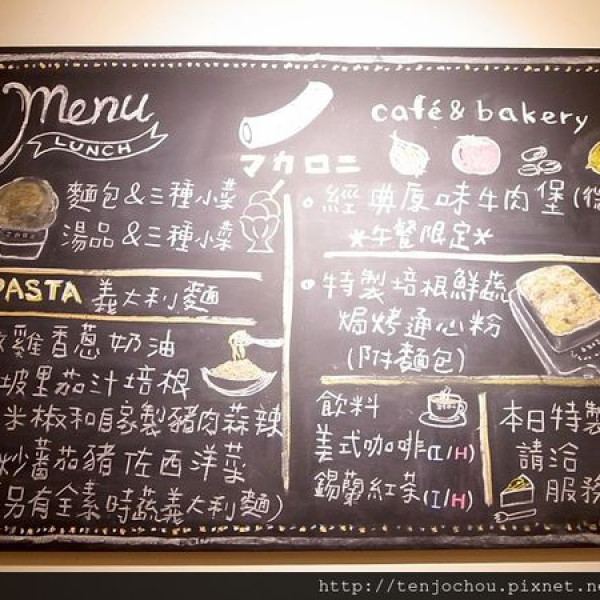 Menu
LUNCH
麵包&三種小菜
湯品&三種小菜
PASTA 義大利麵
雞香蔥奶油
坡里茄汁培根
米椒和自家製豬肉蒜辣
炒蕃茄豬佐西洋菜
另有全素時蔬義大利麵)
マカロニ
café & bakery
經典原味牛肉堡(
*午餐限定*
特製培根鮮蔬
焗烤通心粉
(附麵包)
飲料
美式咖啡(I/H)
錫蘭紅茶(I/H)
本日特製
請洽
服務
http://tenjochou.pixnet.ne